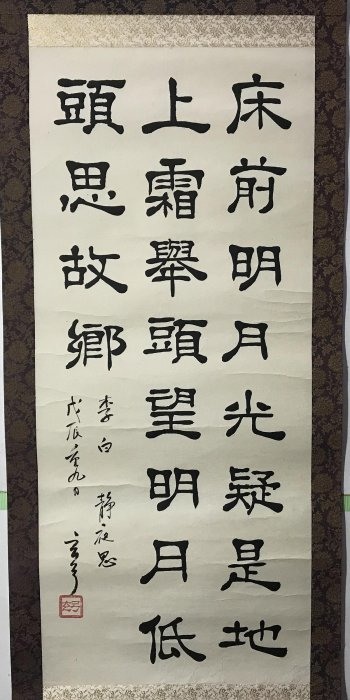 床前明月光疑是地
上霜舉頭望明月低
頭思故鄉
李白 靜夜思
戊辰重九日